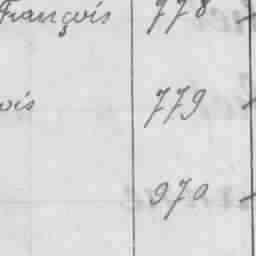 François 778 -
ois 779 -
970 -